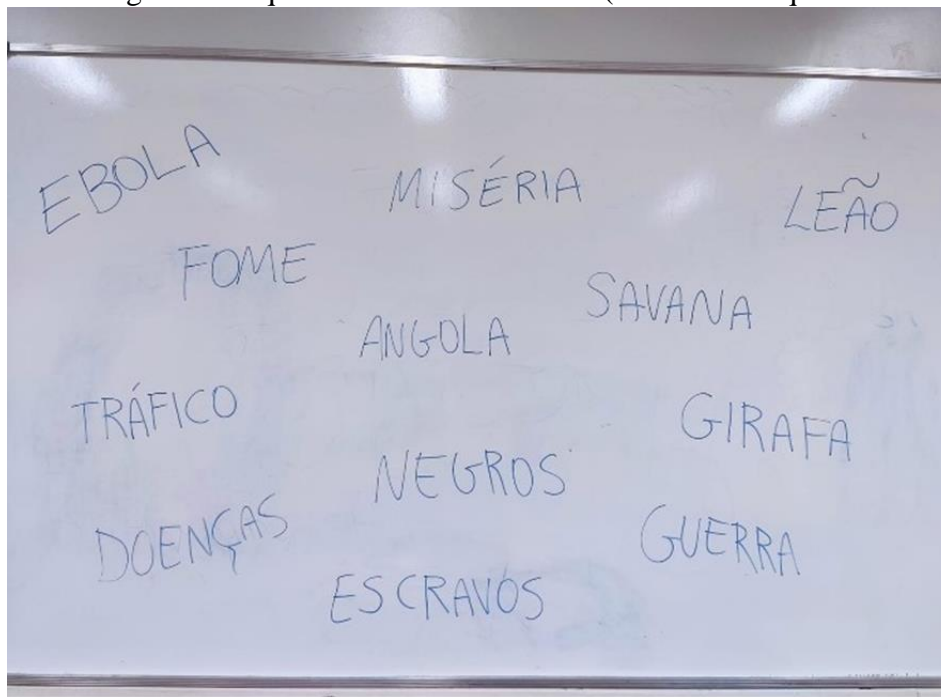 EBOLA
MISÉRIA
LEÃO
FOME
SAVANA
ANGOLA
TRÁFICO
GIRAFA
NEGROS
DOENÇAS
GUERRA
ESCRAVOS